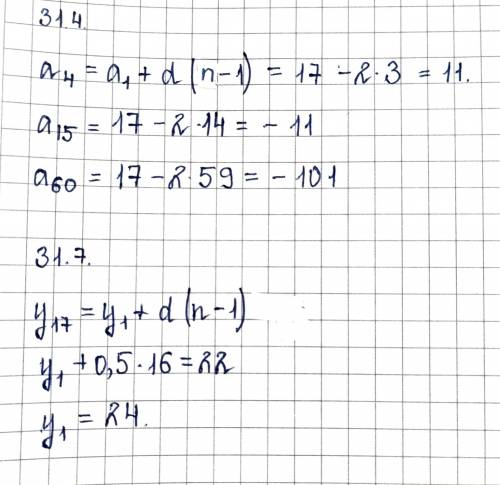 31.4.
a₄ = a₁ + d (n-1) = 17 - 2·3 = 11.
a₁₅ = 17 - 2·14 = - 11
a₆₀ = 17 - 2·59 = - 101
31.7.
y₁₇ = y₁ + d (n-1)
y₁ + 0,5·16 = 22
y₁ = 24.